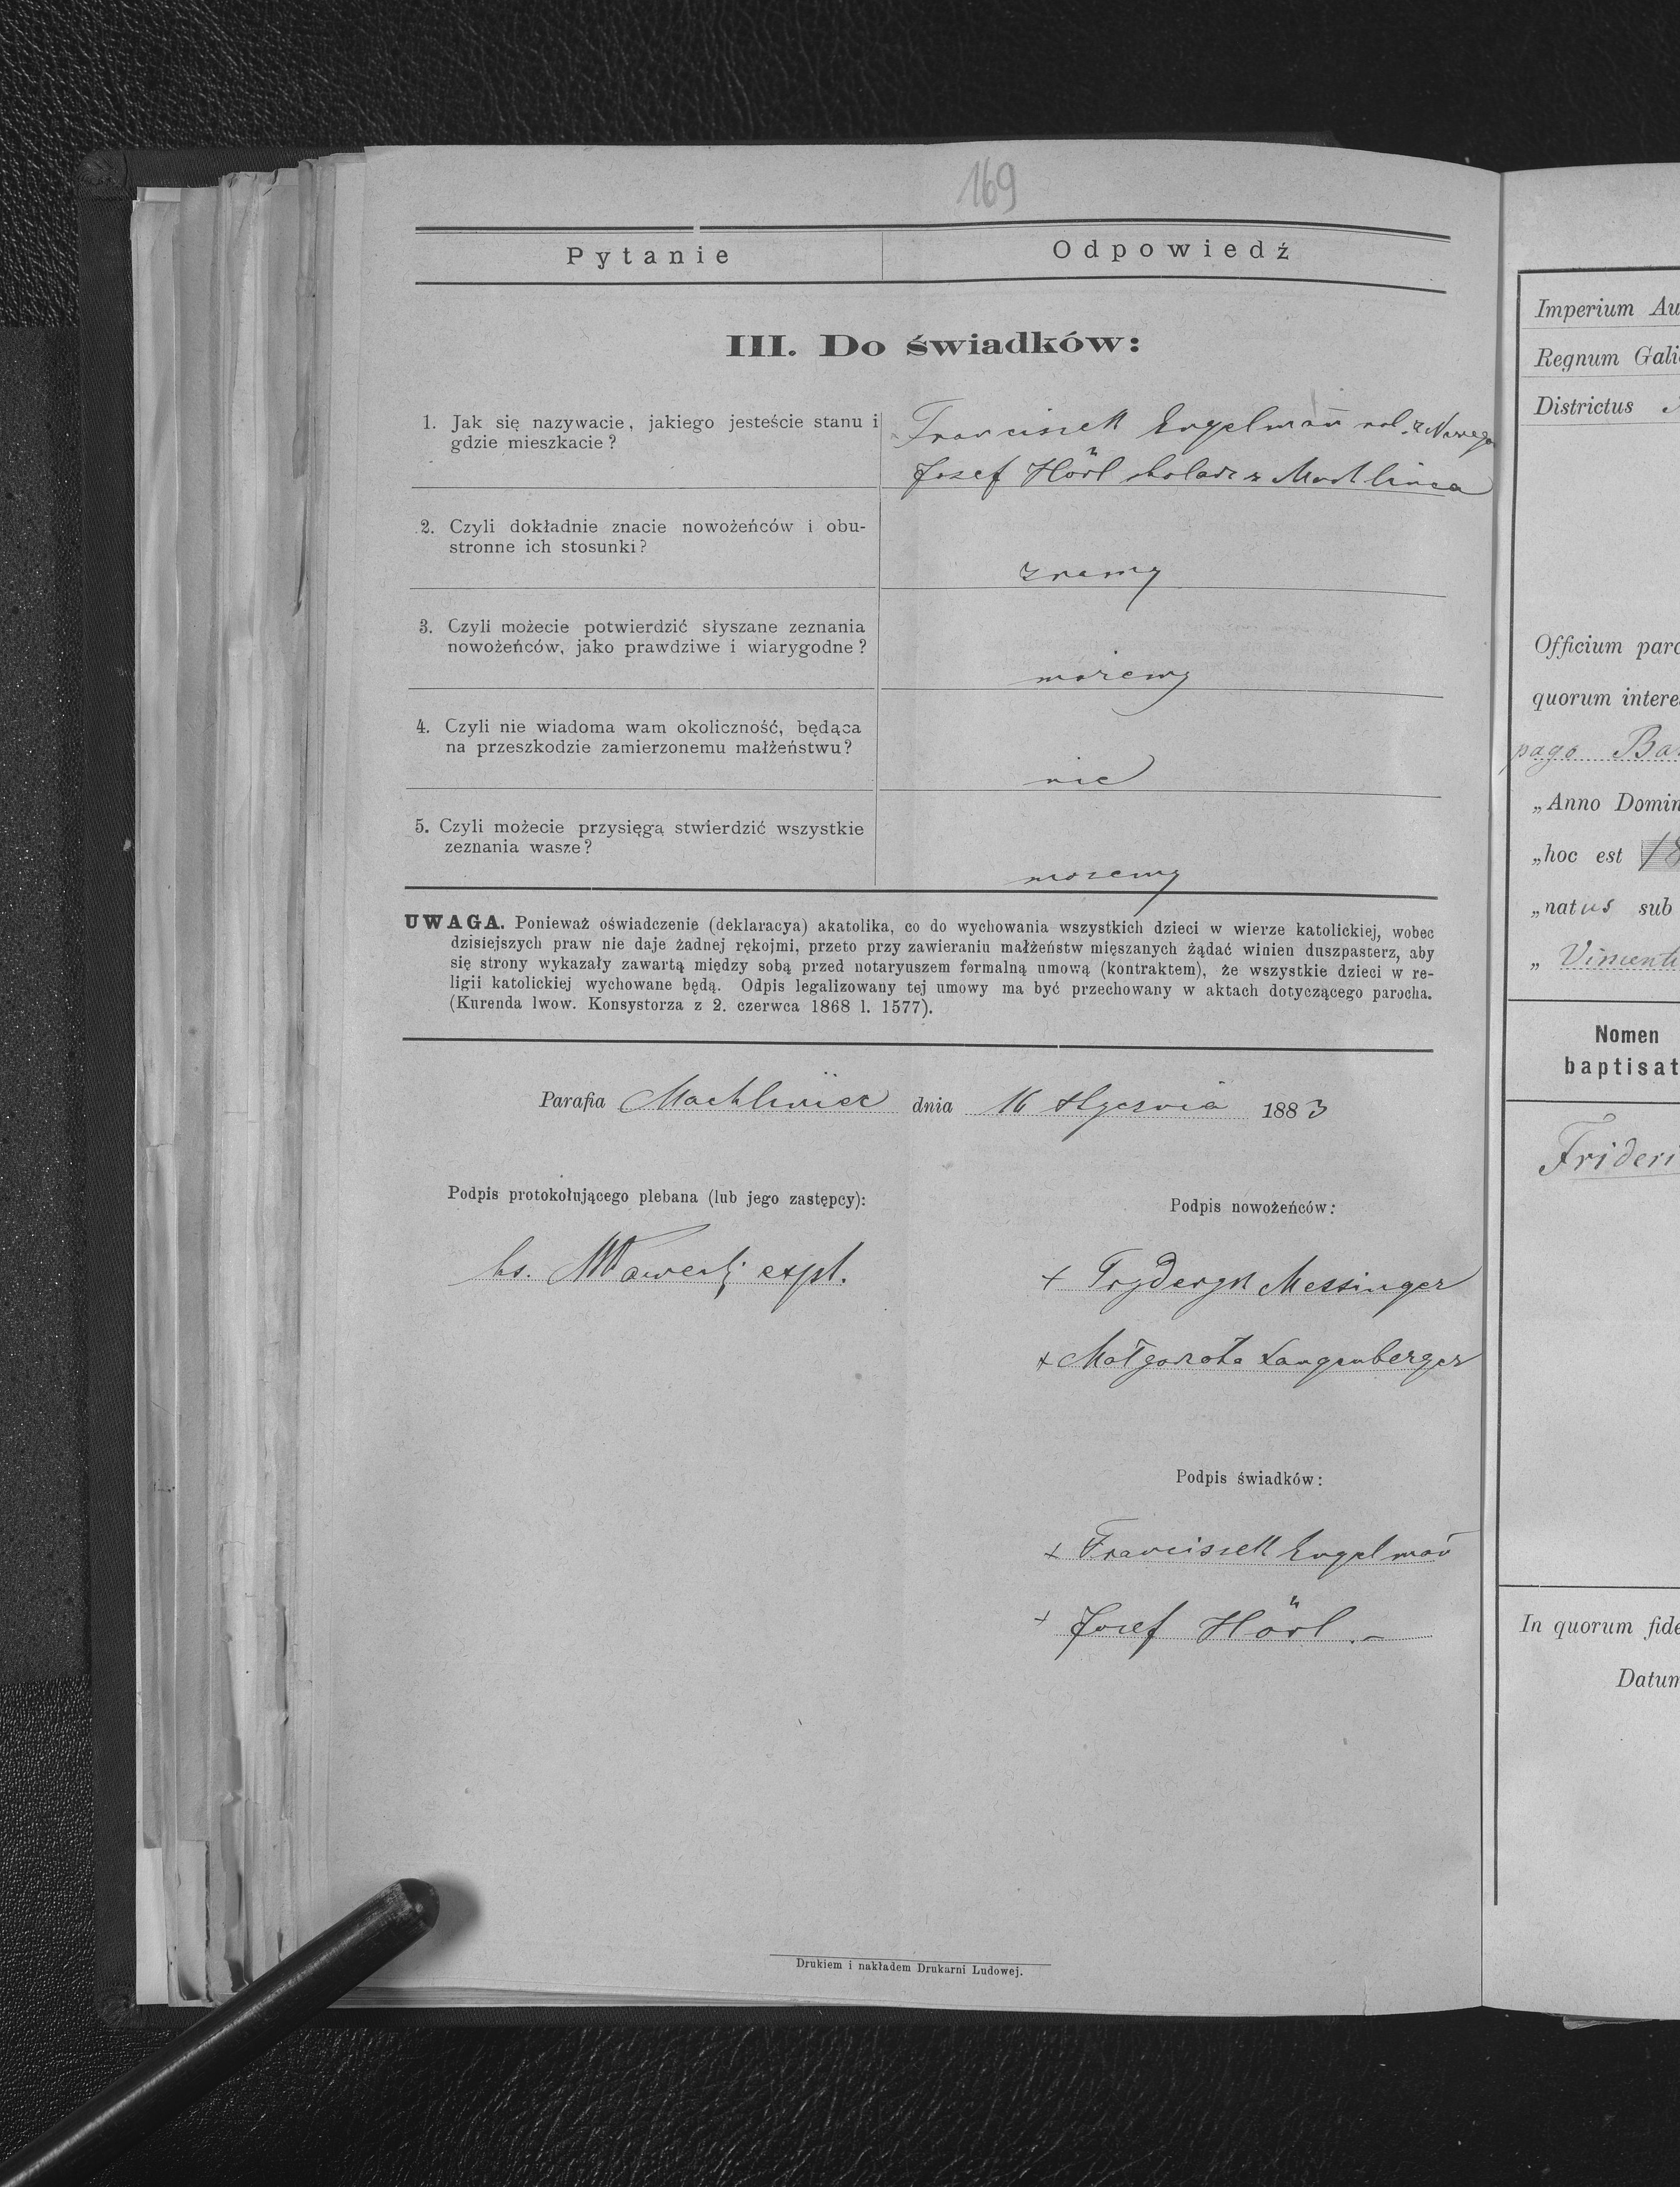 169
Pytanie
Odpowiedź
III. Do świadków:
1. Jak się nazywacie, jakiego jesteście stanu i
gdzie mieszkacie?
Franciszek Engelmañ rol. z Nowego
Josef Hörl z Machlinca
2. Czyli dokładnie znacie nowożeńców i obu-
stronne ich stosunki?
znamy
3. Czyli możecie potwierdzić słyszane zeznania
nowożeńców, jako prawdziwe i wiarygodne?
możemy
4. Czyli nie wiadoma wam okoliczność, będąca
na przeszkodzie zamierzonemu małżeństwu?
nie
5. Czyli możecie przysięgą stwierdzić wszystkie
zeznania wasze?
mozemy
UWAGA. Ponieważ oświadczenie (deklaracya) akatolika, co do wychowania wszystkich dzieci w wierze katolickiej, wobec
dzisiejszych praw nie daje żadnej rękojmi, przeto przy zawieraniu małżeństw mięszanych żądać winien duszpasterz, aby
się strony wykazały zawartą między sobą przed notaryuszem formalną umową (kontraktem), że wszystkie dzieci w re-
ligii katolickiej wychowane będą. Odpis legalizowany tej umowy ma być przechowany w aktach dotyczącego parocha.
(Kurenda lwow. Konsystorza z 2. czerwca 1868 l. 1577).
Parafia Machliniec dnia 16 Stycznia 1883
Podpis protokołującego plebana (lub jego zastępcy):
ks. expl.
Podpis nowożeńców:
+ Fryderyk Messinger
+ Małgorzata Langenberger
Podpis świadków:
+ Franciszek Engelmañ
+ Josef Hörl.–
Drukiem i nakładem Drukarni Ludowej.
Imperium Au
Regnum Gali
Districtus
Officium paro
quorum intere
pago Ba
„Anno Domin
„hoc est 18
„natus sub
„ Vincenti
Nomen
baptisat
Frideri
In quorum fide
Datum